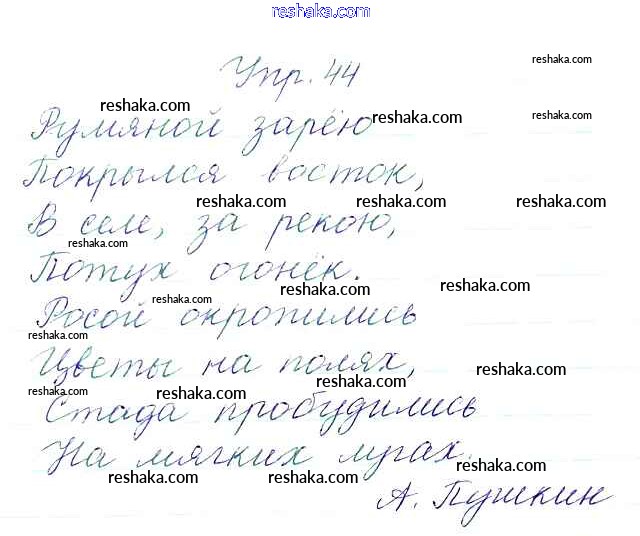 reshaka.com
Упр. 44
reshaka.com
reshaka.com
Румяной зарёю
reshaka.com
reshaka.com
Покрылся восток,
reshaka.com reshaka.com reshaka.com
В селе, за рекою,
reshaka.com
Потух огонёк.
reshaka.com reshaka.com
reshaka.com
Росой окропились
reshaka.com
Цветы на полях,
reshaka.com reshaka.com reshaka.com reshaka.com
Стада пробудились
reshaka.com reshaka.com
На мягких лугах.
reshaka.com reshaka.com reshaka.com
А. Пушкин